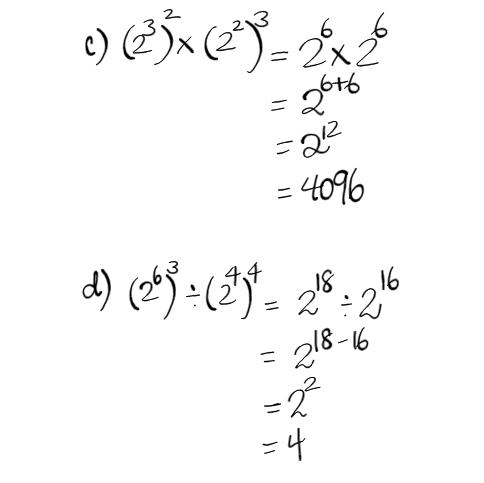 c) (2³)² × (2²)³ = 2⁶ × 2⁶
= 2⁶⁺⁶
= 2¹²
= 4096
d) (2⁶)³ ÷ (2⁴)⁴ = 2¹⁸ ÷ 2¹⁶
= 2¹⁸⁻¹⁶
= 2²
= 4